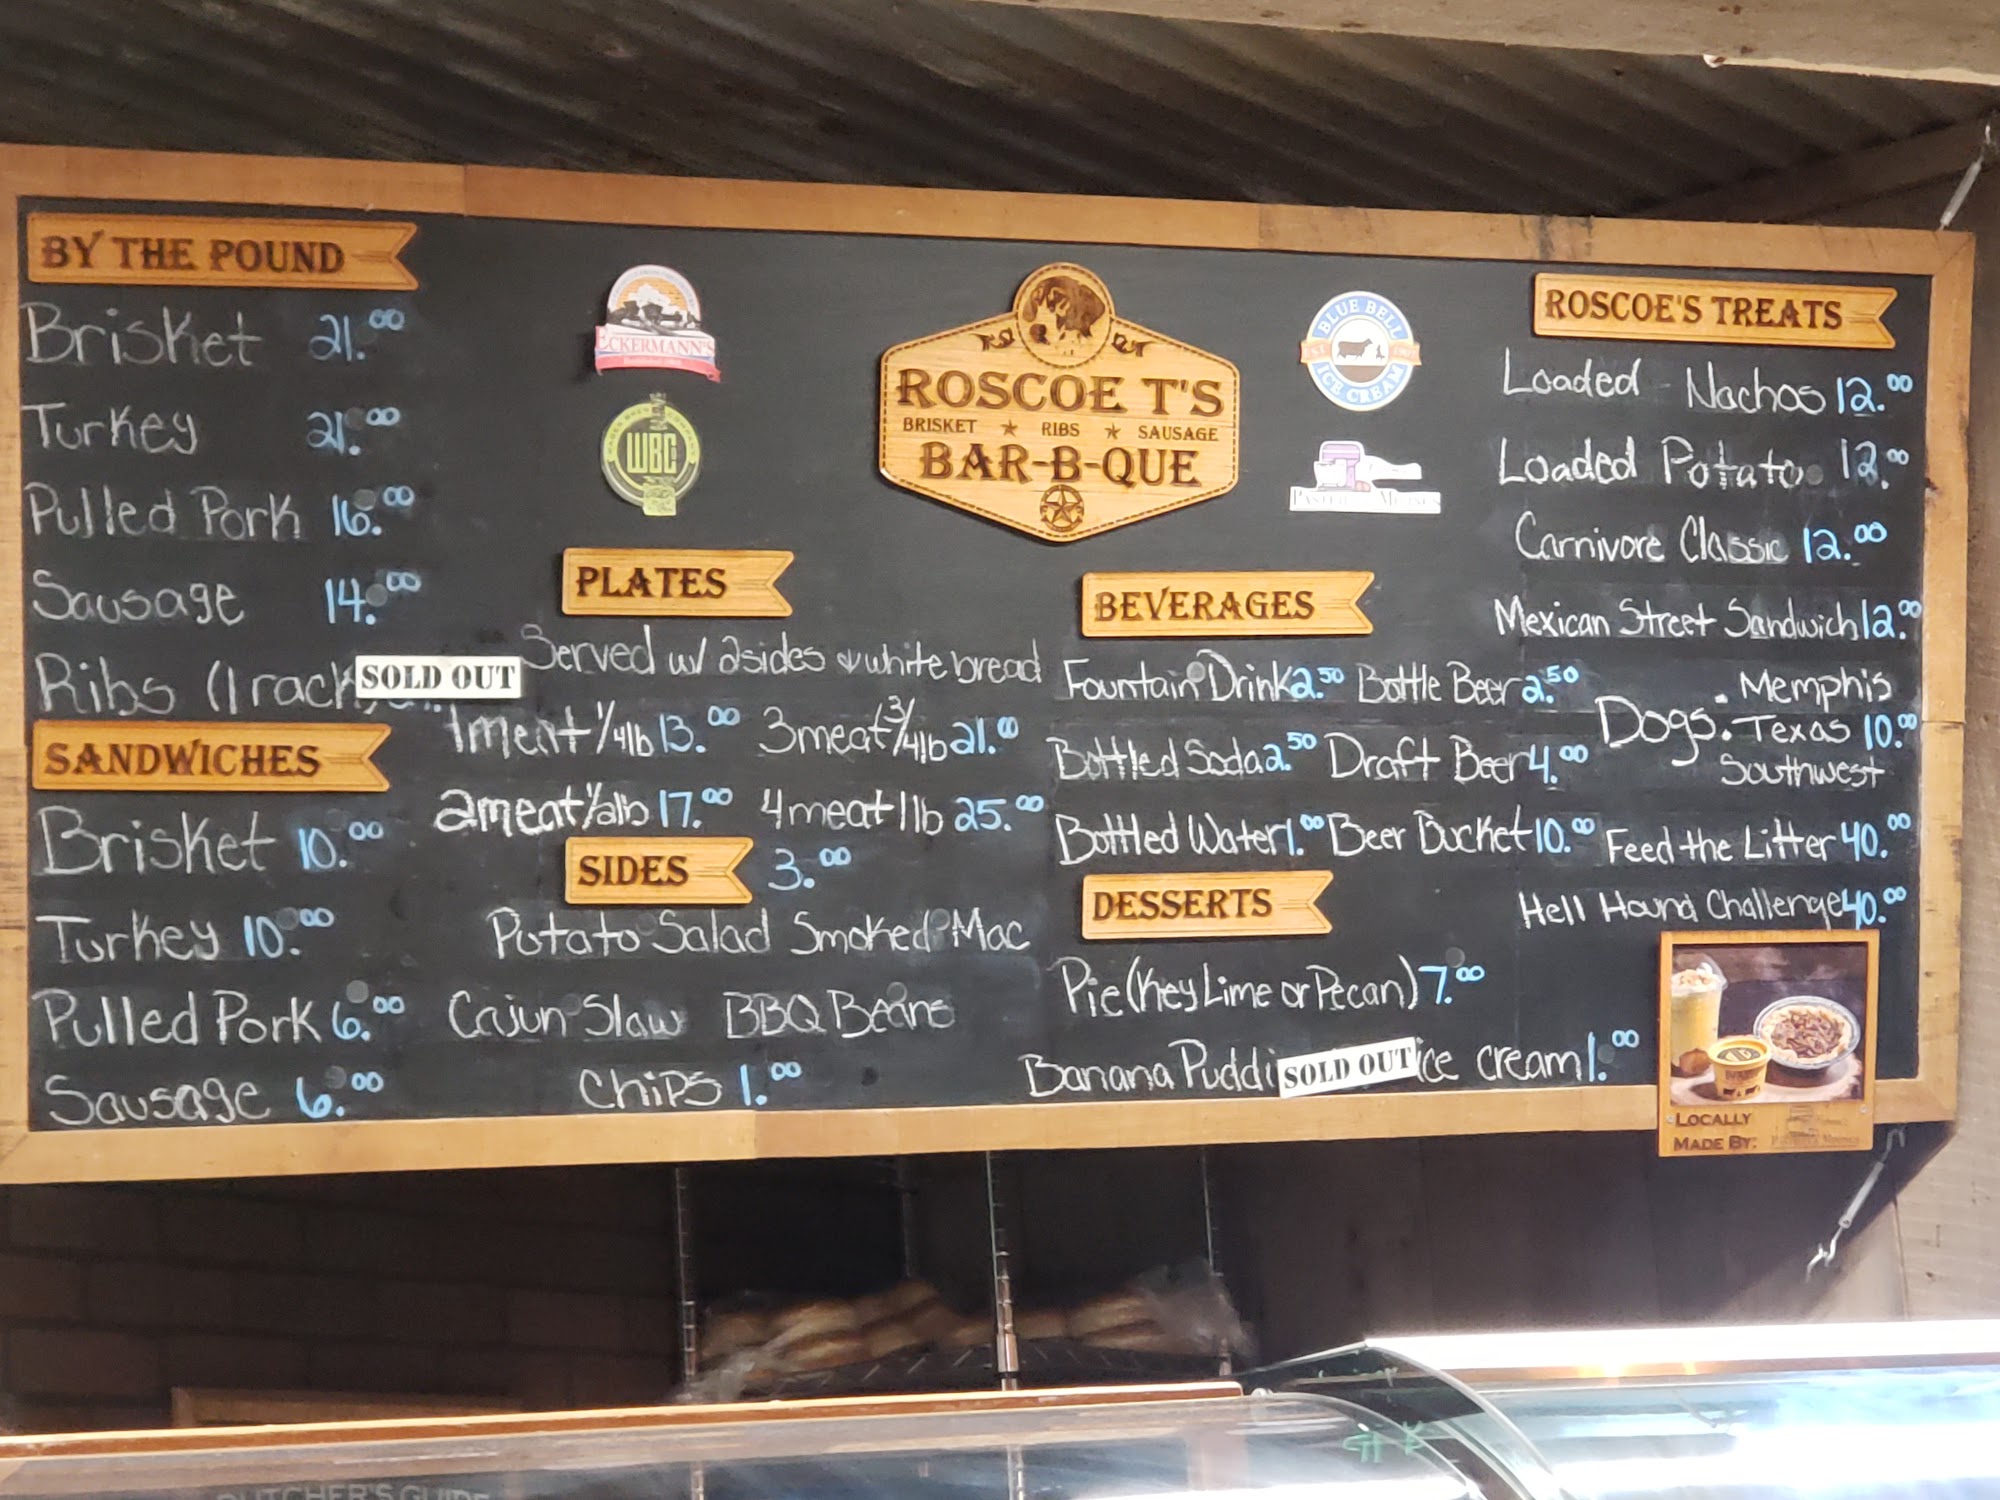 BY THE POUND
Brisket 21.00
Turkey 21.00
Pulled Pork 16.00
Sausage 14.00
Ribs (1 rack
SOLD OUT
SANDWICHES
Brisket 10.00
Turkey 10.00
Pulled Pork 6.00
Sausage 6.00
ECKERMANN'S
WBC
PLATES
Served w/ 2sides & white bread
1meat 1/4lb 13.00 3meat 3/4lb 21.00
2meat 1/2lb 17.00 4meat 1lb 25.00
SIDES 3.00
Potato Salad Smoked Mac
Cajun Slaw BBQ Beans
Chips 1.00
ROSCOE T'S
BRISKET ★ RIBS ★ SAUSAGE
BAR-B-QUE
BLUE BELL
ICE CREAM
BEVERAGES
Fountain Drink 2.50 Bottle Beer 2.50
Bottled Soda 2.50 Draft Beer 4.00
Bottled Water 1.00 Beer Bucket 10.00
DESSERTS
Pie (Key Lime or Pecan) 7.00
Banana Puddi SOLD OUT ice cream 1.00
ROSCOE'S TREATS
Loaded Nachos 12.00
Loaded Potato 12.00
Carnivore Classic 12.00
Mexican Street Sandwich 12.00
Memphis
Dogs: Texas 10.00
Southwest
Feed the Litter 40.00
Hell Hound Challenge 40.00
LOCALLY
MADE BY:
BUTCHER'S GUIDE